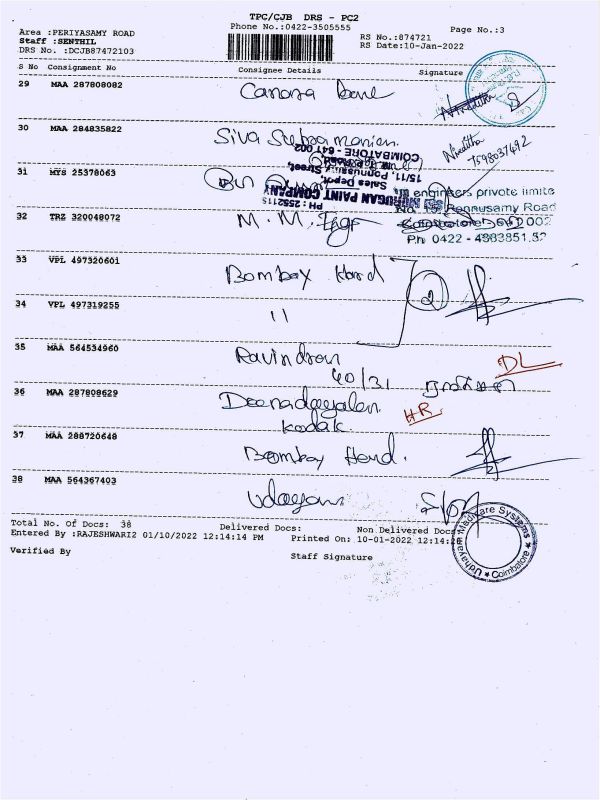 TPC/CJB DRS - PC2
Phone No.:0422-3505555
Page No.:3
Area :PERIYASAMY ROAD
Staff :SENTHIL
DRS No. :DCJB87472103
RS No.:874721
RS Date:10-Jan-2022
S No Consignment No Consignee Details Signature
29 MAA 287808082 Canara
30 MAA 284835822 Siva Nivetha
7598037492
COIMBATORE - 641 002
31 MYS 25378063
15/11, Ponnusamy Street,
Sales Depot,
MURUGAN PAINT COMPANY
engineers private limite
Ponnusamy Road
32 TRZ 320048072 M. M.
002
Ph 0422 - 4383851,52
33 VPL 497320601 Bombay Hard 2
34 VPL 497319255 "
35 MAA 564534960 Ravindran DL
40/31
36 MAA 287808629 Deenadayalan HR
Kodak
37 MAA 288720648 Bombay Hard.
38 MAA 564367403 Udayam
Total No. Of Docs: 38 Delivered Docs: Non Delivered Docs
Entered By :RAJESHWARI2 01/10/2022 12:14:14 PM Printed On: 10-01-2022 12:14:2
Verified By Staff Signature
Udhayam Medicare Systems
Coimbatore